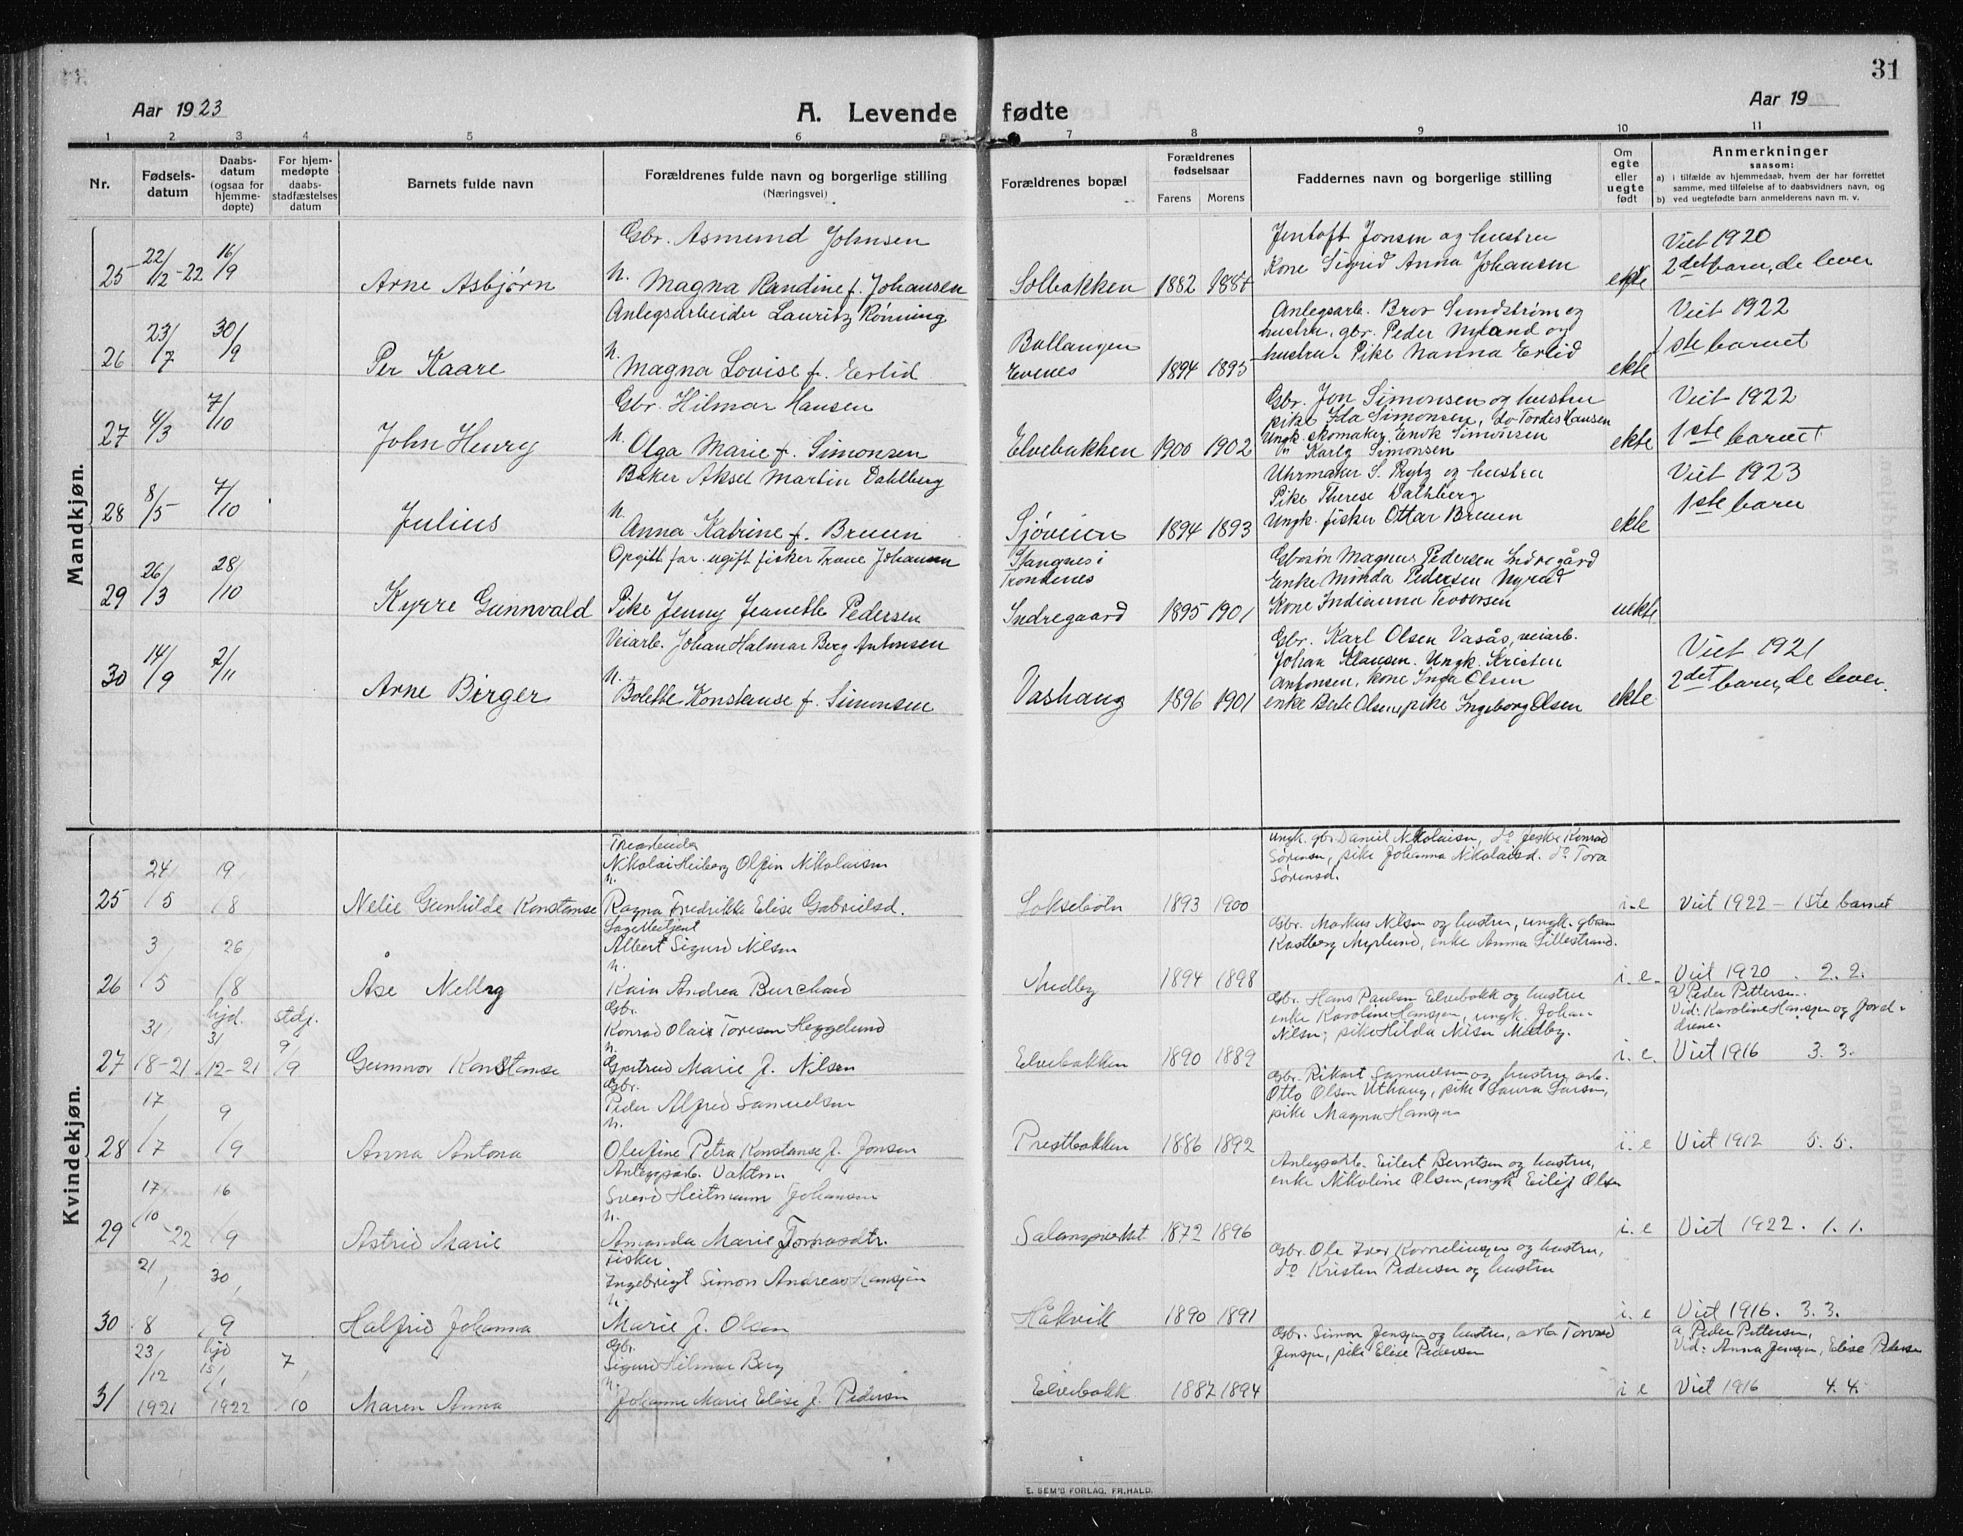 31
Aar 1923
A. Levende fødte
Aar 19
1 2 3 4 5 6 7 8 9 10 11
Nr.
Fødsels-
datum
Daabs-
datum
(ogsaa for
hjemme-
døpte)
For hjem-
medøpte
daabs-
stadfæstelses
datum
Barnets fulde navn
Forældrenes fulde navn og borgerlige stilling
(Næringsvei)
Forældrenes bopæl
Forældrenes
fødselsaar
Farens Morens
Faddernes navn og borgerlige stilling
Om
egte
eller
uegte
født
Anmerkninger
saasom:
a) i tilfælde av hjemmedaab, hvem der har forrettet
samme, med tilføielse af to daabsvidners navn, og
b) ved uegtefødte barn anmelderens navn m. v.
Mandkjøn.
25 22/12-22 16/9 Arne Asbjørn
Gbr. Asmund Johnsen
h. Magna Randine f. Johansen
Solbakken 1882
Jentoft Jonsen og hustru
Kone Sigrid Anna Johansen
ekte
Viet 1920
2det barn, de lever
26 23/7 30/9 Per Kaare
Anlegsarbeider Lauritz Rønning
h. Magna Lovise f. Erlid
Ballangen
Evenes
1894 1895
Anlegsarb. Bror Sundstrøm og
hustru, gbr. Peder Nyland og
hustru. Pike Nanna Erlid
ekte
Viet 1922
1ste barnet
27 4/3 7/10 John Henry
Gbr. Hilmar Hansen
h. Olga Marie f. Simonsen
Elvebakken 1900 1902
Gbr. Jon Simonsen og hustru
pike Ida Simonsen, do Tordis Hansen
Ungk. skomaker Simonsen
Karly Simonsen
ekte
Viet 1922
1ste barnet
28 8/5 7/10 Julius
Baker Aksel Martin Dahlberg
h. Anna Katrine f. Bruun
Sjøveien 1894 1893
Uhrmaker S. Prytz og hustru
Pike Therese Dahlberg
Ungk. fisker Ottar Bruun
ekte
Viet 1923
1ste barn
29 26/3 28/10 Kyrre Gunnvald
Opgitt far. ugift fisker Johansen
Pike Jenny Jeanette Pedersen
Stangnes i
Trondenes
Indregaard
1895 1901
Gbrsøn Magnus Pedersen Indregård
Enke Minda Pedersen
Kone Indianna Teodorsen
uekte
30 14/9 2/11 Arne Birger
Veiarb. Johan Halmar Berg Antonsen
h. Bolette Konstanse f. Simonsen
Vashaug 1896 1901
Gbr. Karl Olsen Vasås, veiarb.
Johan Klausen. Ungk. Kristen
Antonsen, kone Inga Olsen
enke Berte Olsen, pike Ingeborg Olsen
ekte
Viet 1921
2det barn, de lever.
Kvindekjøn.
25 24/5 19/8 Nelie Gunhilde Konstanse
Nikolai Heiberg Nikolaisen
h.
Ragna Fredrikke Elise Gabrielsd.
Loksebotn 1893 1900
Ungk. gbr. Daniel Nikolaisen, do fisker Konrad
Sørensen, pike Johanna Nikolaisd. do Tora
Sørensd.
i-e Viet 1922 - 1ste barnet
26 3/5 26/8 Åse Nelly
Lagerbetjent
Albert Sigurd Nilsen
h.
Kaia Andrea Burchard
Medby 1894 1898
Gbr. Markus Nilsen og hustru, ungk. gbrsøn
Kastberg Myrlund, enke Anna Lillestrand.
i.e. Viet 1920. 2. 2.
27 31/8-21 hjd. 31/12-21 stdf. 9/9 Gunnvor Konstanse
Gbr.
Konrad Olai Toresen Heggelund
h.
Gjertrud Marie f. Nilsen
Elvebakken 1890 1889
Gbr. Hans Paulsen Elvebakk og hustru
enke Karoline Hansen, ungk. Johan
Nilsen; pike Hilda Nilsen Medby.
i.e.
a) Peder Pettersen.
Vid: Karoline Hansen og
Viet 1916 3. 3.
28 17/7 9/9 Anna Antona
Gbr.
Peder Alfred Samuelsen
h.
Olufine Petra Konstanse f. Jonsen
Prestbakken 1886 1892
Gbr. Rikart Samuelsen og hustru arb.
Otto Olsen Uthaug, pike Laura Larsen,
pike Magna Hansen
i.e Viet 1912 5. 5.
29 17/10-22 16/9 Astrid Marie
Anleggsarb. Vaktm.
Sverd Heitmann Johansen
h.
Amanda Marie Tomasdtr.
Salangsverket 1872 1896
Anlegsarb. Eilert Berntsen og hustru,
enke Nikoline Olsen, ungk Eilif Olsen
i.e Viet 1922. 1. 1.
30 21/8 30/9 Halfrid Johanna
Fisker
Ingebrigt Simon Andreas Hansen
h.
Marie f. Olsen
Håkvik 1890 1891
Gbr. Ole Iver Korneliussen og hustru,
do Kristen Pedersen og hustru
i.e Viet 1916. 3. 3.
31 23/12 1921 hjd 15/1 1922 7/10 Maren Anna
Gbr.
Sigurd Hilmar Berg
h.
Johanne Marie Elise f. Pedersen
Elvebakk 1887 1894
Gbr. Simon Jensen og hustru, arb. Torvald
Jensen, pike Elise Pedersen
i e
a. Peder Pettersen,
Vid: Anna Jensen, Elise Pedersen
Viet 1916 4. 4.
E. SEM'S FORLAG, FR.HALD.